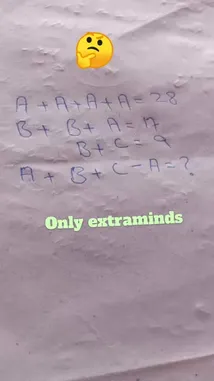 A + A + A + A = 28
B + B + A = 17
B + C = 9
A + B + C - A = ?
Only extraminds